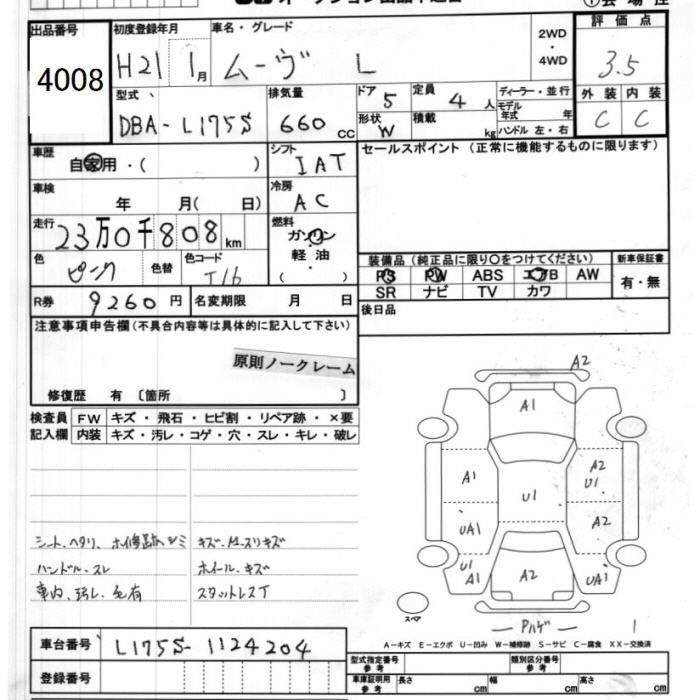 出品番号 初度登録年月 車名・グレード 2WD・4WD 評価点
4008 H21 1月 ムーヴ L 3.5
型式 排気量 ドア 5 定員 4人 ディーラー・並行 外装 内装
DBA-L175S 660cc 形状 W 積載 kg モデル年式 年 ハンドル 左・右 C C
車歴 自家用・( ) シフト IAT セールスポイント (正常に機能するものに限ります)
車検 年 月( 日) 冷房 AC
走行 23万0千808km 燃料 ガソリン 軽油 ( )
色 ピンク 色替 色コード T16 装備品 (純正品に限り○をつけてください) 新車保証書
PS PW ABS エアB AW 有・無
SR ナビ TV カワ
R券 9260円 名変期限 月 日 後日品
注意事項申告欄 (不具合内容等は具体的に記入して下さい)
原則ノークレーム
修復歴 有 〔箇所 〕
検査員 FW キズ・飛石・ヒビ割・リペア跡・×要
記入欄 内装 キズ・汚レ・コゲ・穴・スレ・キレ・破レ
シート、ヘタリ、ホ修跡、シミ
ハンドル・スレ ホイール・キズ
車内、汚レ、毛有 スタットレスT
A2
A1
A1 U1 A2 U1
UA1 A2
U1 A1 A2 UA1
スペア
Pハゲ 1
A-キズ E-エクボ U-凹み W-補修跡 S-サビ C-腐食 XX-交換済
車台番号 L175S-1124204
型式指定番号 参考 類別区分番号 参考
登録番号 車庫証明用 参考 長さ cm 幅 cm 高さ cm